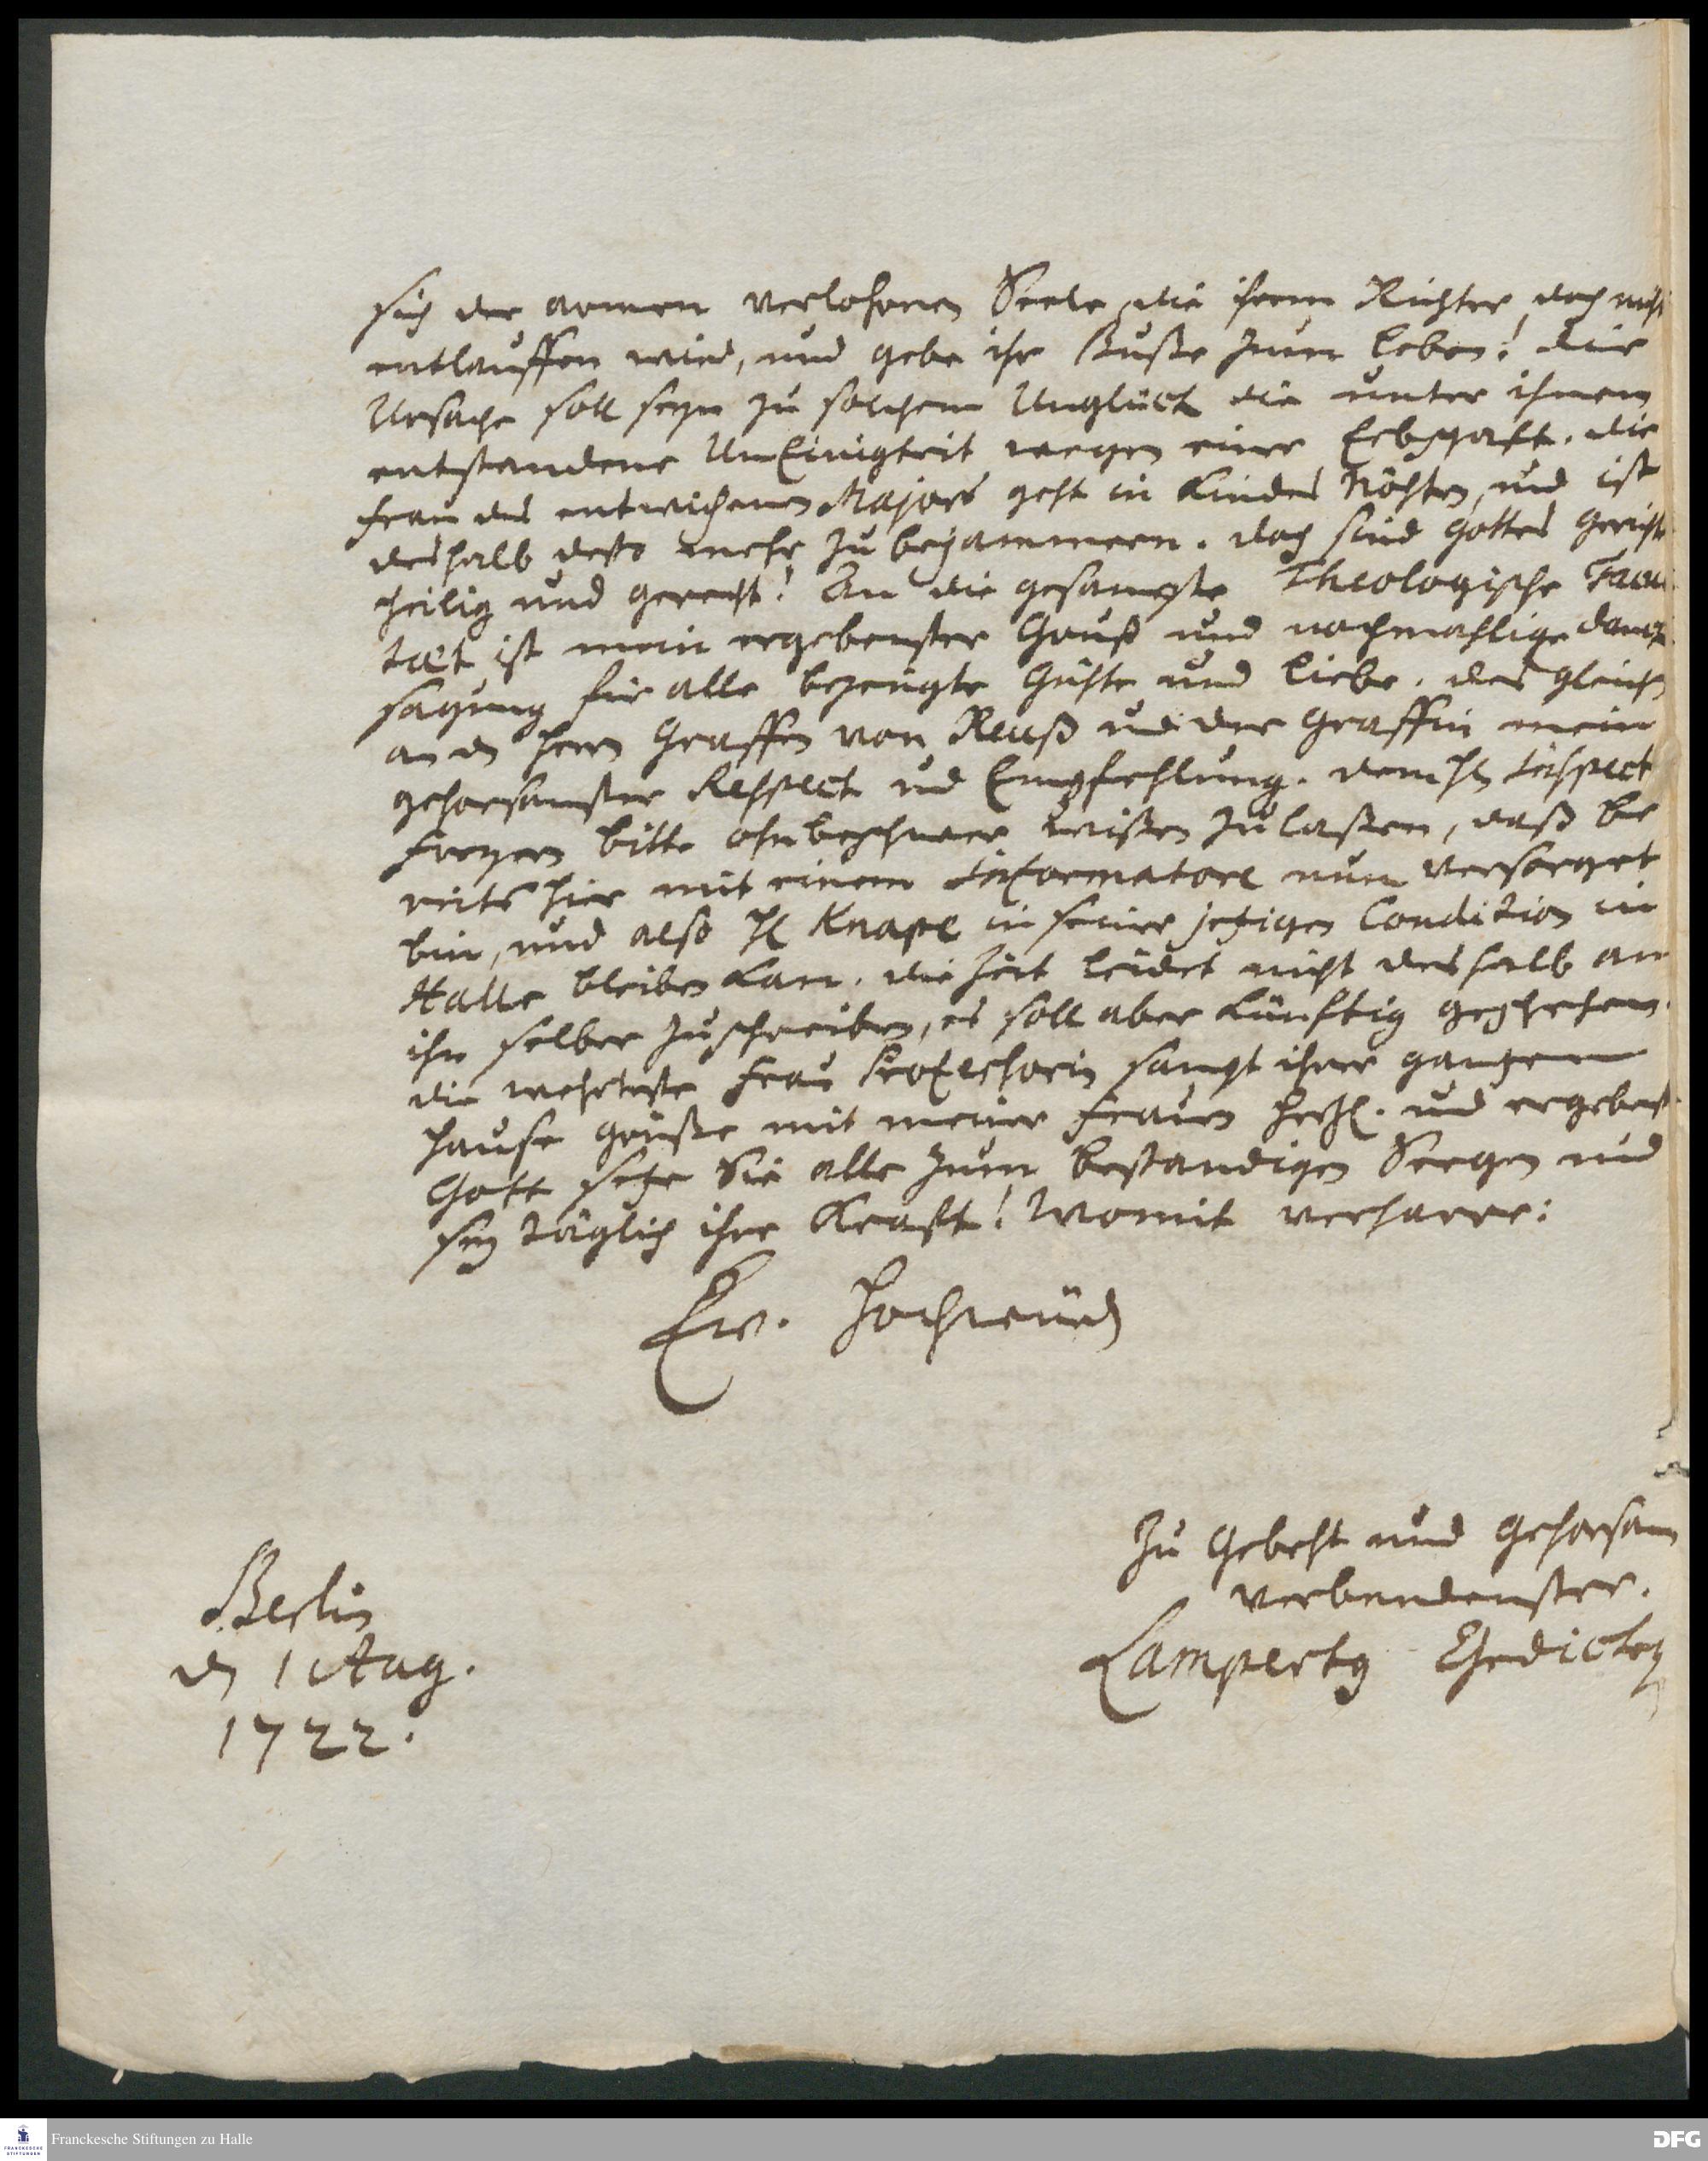 sich der armen verlohrnen Seele, die ihrem Richter doch nicht
entlauffen wird, und gebe ihr Buße zum Leben! die
Ursache soll seyn zu solchem Unglück die unter ihnen
entstandene UnEinigkeit wegen einer Erbschaft. die
Frau des entwichenen Majors geht in Kindes Nöhten, und ist
deshalb desto mehr zu bejammern. doch sind Gottes Gerichte
heilig und gerecht! An die gesampte Theologische Facul
tæt ist mein ergebenster Gruß und nochmahlige Danck
sagung für alle bezeugte Gühte und Liebe. des gleichen
an den Herrn Graffen von Reuß und der Graffin mein
gehorsamster Respect und Empfehlung. dem H. Inspect
Freyern bitte ohnbeschwer wißen zu laßen, daß be
reits hier mit einem Informatore nun versorget
bin, und also H. Knape in seiner jetzigen Condition in
Halle bleiben kan. die Zeit leidet nicht deshalb an
ihn selber zuschreiben, es soll aber künftig geschehen.
die wehrteste Frau Professorin sampt ihrer gantzen
Hause grüße mit meiner Frauen hertzl. und ergebenst
Gott setze Sie alle zum bestandigen Seegen und
sey täglich ihre Krafft! Womit verharre:
Ew. Hochwürd
Zu Gebeht und Gehorsam
verbundenster.
Lampertg Gedickeg
Berlin
den 1 Aug.
1722.
Franckesche Stiftungen zu Halle
FRANCKESCHE
STIFTUNGEN
DFG